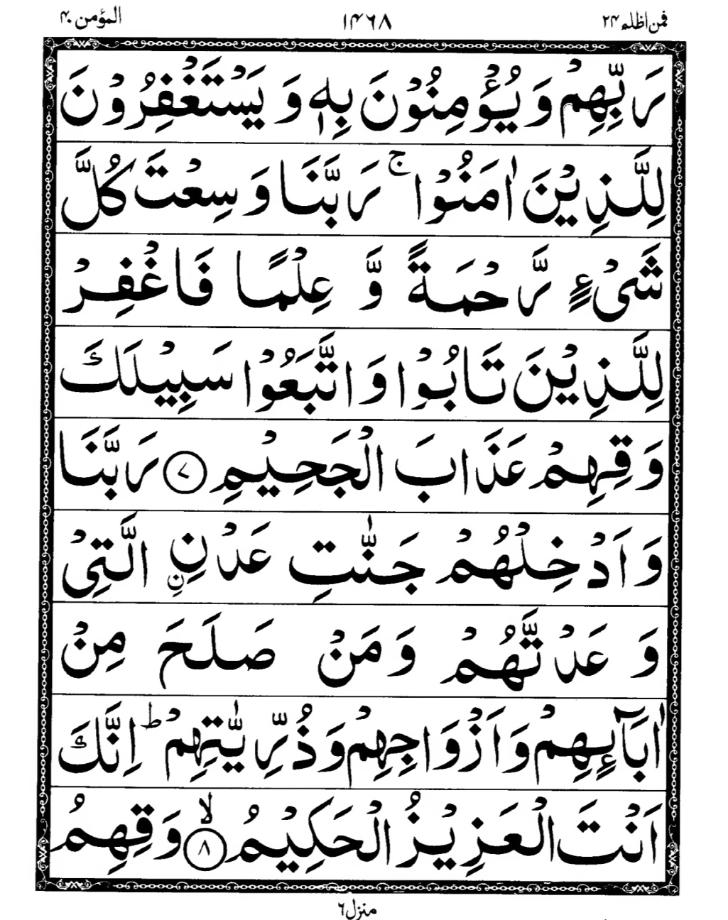 فمن اظلم ۲۴
۱۴۶۸
المؤمن ۴۰
رَبِّهِمْ وَيُؤْمِنُوْنَ بِهٖ وَ يَسْتَغْفِرُوْنَ
لِلَّذِيْنَ اٰمَنُوْا ۚ رَبَّنَا وَسِعْتَ كُلَّ
شَىْءٍ رَّحْمَةً وَّ عِلْمًا فَاغْفِرْ
لِلَّذِيْنَ تَابُوْا وَاتَّبَعُوْا سَبِيْلَكَ
وَقِهِمْ عَذَابَ الْجَحِيْمِ ﴿۷﴾ رَبَّنَا
وَاَدْخِلْهُمْ جَنّٰتِ عَدْنِ ۨ الَّتِىْ
وَعَدْتَّهُمْ وَمَنْ صَلَحَ مِنْ
اٰبَآئِهِمْ وَاَزْوَاجِهِمْ وَذُرِّيّٰتِهِمْ ؕ اِنَّكَ
اَنْتَ الْعَزِيْزُ الْحَكِيْمُ ۙ﴿۸﴾ وَقِهِمُ
منزل ۶